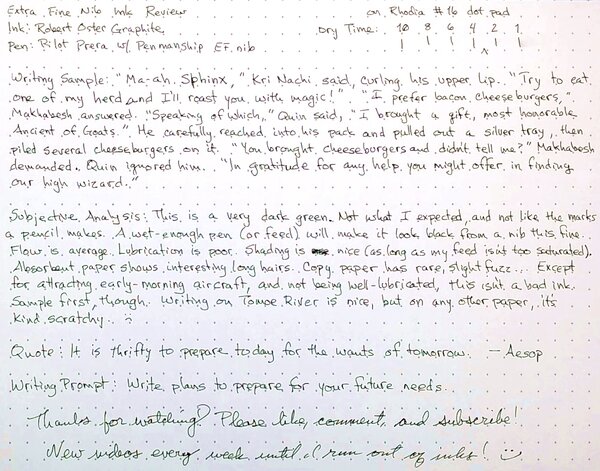 Extra Fine Nib Ink Review on Rhodia #16 dot pad
Ink: Robert Oster Graphite Dry Time: 10 8 6 4 2 1
Pen: Pilot Prera w/ Penmanship EF nib
Writing Sample: "Ma-ah Sphinx," Kri Nachi said, curling his upper lip. "Try to eat
one of my herd and I'll roast you with magic!" "I prefer bacon cheeseburgers,"
Makhabesh answered. "Speaking of which," Quin said, "I brought a gift, most honorable
Ancient of Goats." He carefully reached into his pack and pulled out a silver tray, then
piled several cheeseburgers on it. "You brought cheeseburgers and didn't tell me?" Makhabesh
demanded. Quin ignored him. "In gratitude for any help you might offer in finding
our high wizard."
Subjective Analysis: This is a very dark green. Not what I expected, and not like the marks
a pencil makes. A wet-enough pen (or feed) will make it look black from a nib this fine.
Flow is average. Lubrication is poor. Shading is nice (as long as my feed isn't too saturated).
Absorbent paper shows interesting long hairs. Copy paper has rare, slight fuzz... Except
for attracting early-morning aircraft, and not being well-lubricated, this isn't a bad ink.
Sample first, though. Writing on Tomoe River is nice, but on any other paper, it's
kind scratchy. :)
Quote: It is thrifty to prepare today for the wants of tomorrow. — Aesop
Writing Prompt: Write plans to prepare for your future needs.
Thanks for watching! Please like, comment, and subscribe!
New videos every week until I run out of inks! :)